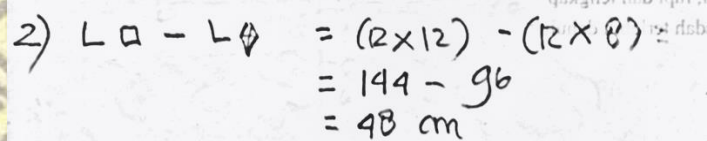 2) L □ - L ◊ = (12 × 12) - (12 × 8) =
= 144 - 96
= 48 cm